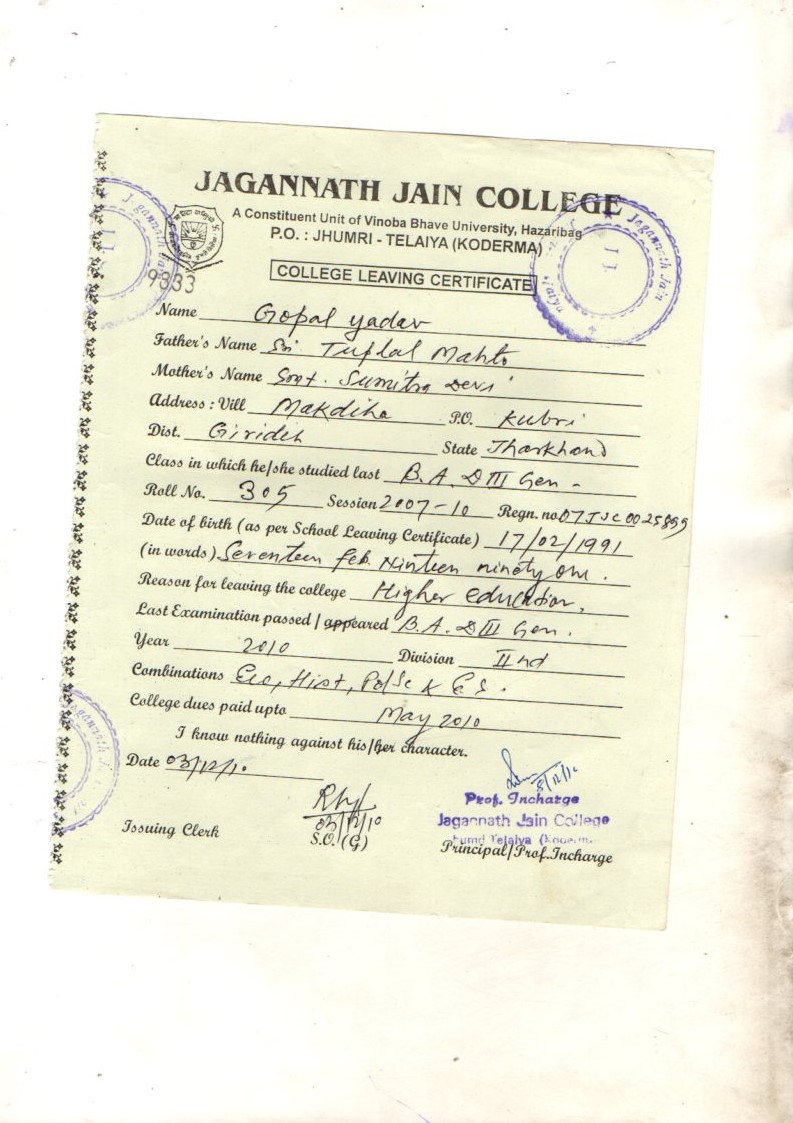 JAGANNATH JAIN COLLEGE
A Constituent Unit of Vinoba Bhave University, Hazaribag
P.O. : JHUMRI - TELAIYA (KODERMA)
9833
COLLEGE LEAVING CERTIFICATE
Name Gopal yadav
Father's Name Sri Tuplal Mahto
Mother's Name Smt. Sumitra Devi
Address : Vill Makdiha P.O. Kubri
Dist. Giridih State Jharkhand
Class in which he/she studied last B.A. D III Gen -
Roll No. 305 Session 2007-10 Regn. no. 07JJC0025899
Date of birth (as per School Leaving Certificate) 17/02/1991
(in words) Seventeen feb. Ninteen ninety one.
Reason for leaving the college Higher education.
Last Examination passed / appeared B.A. D III Gen.
Year 2010 Division II nd
Combinations Eco, Hist, Pol/Sc & E.S.
College dues paid upto May 2010
I know nothing against his/her character.
Date 03/12/10
03/12/10
Prof. Incharge
Jagannath Jain College
Issuing Clerk S.O. (G) Principal/Prof.Incharge
Jagannath Jain